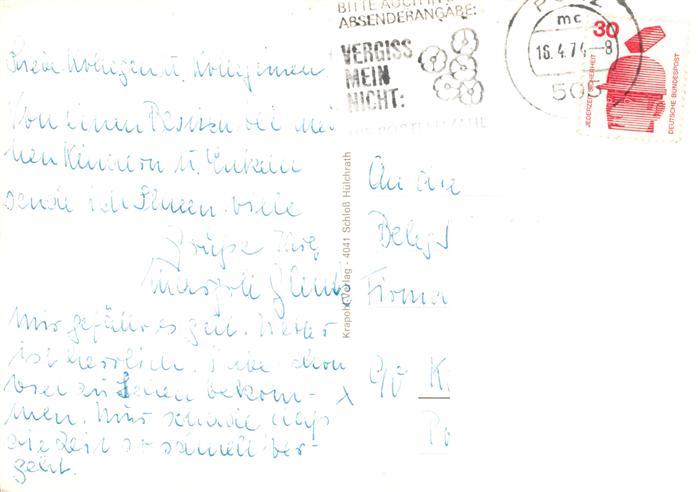 Liebe Kollegen u. Kolleginnen
Von einem Besuch bei mei-
nen Kindern u. Enkeln
sende ich Ihnen viele
Grüße Ihre
Mir gefällt es gut. Wetter
ist herrlich. Habe schon
viel zu sehen bekom-
men. Nur schade daß
die Zeit so schnell ver-
geht.
Krapohl-Verlag · 4041 Schloß Hülchrath
BITTE AUCH IN
ABSENDERANGABE:
VERGISS
MEIN
NICHT:
PORZ
mc
16.4.74-8
505
30
JEDERZEIT SICHERHEIT
DEUTSCHE BUNDESPOST
An die
Firma